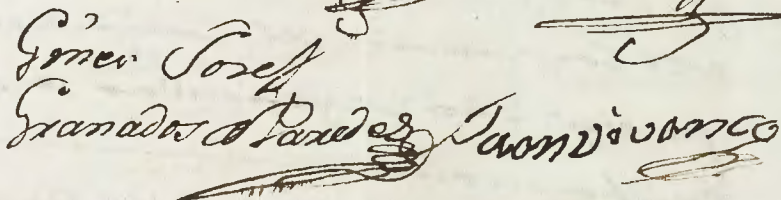 Giner Josef
Granados de Paredes Juan vivanco